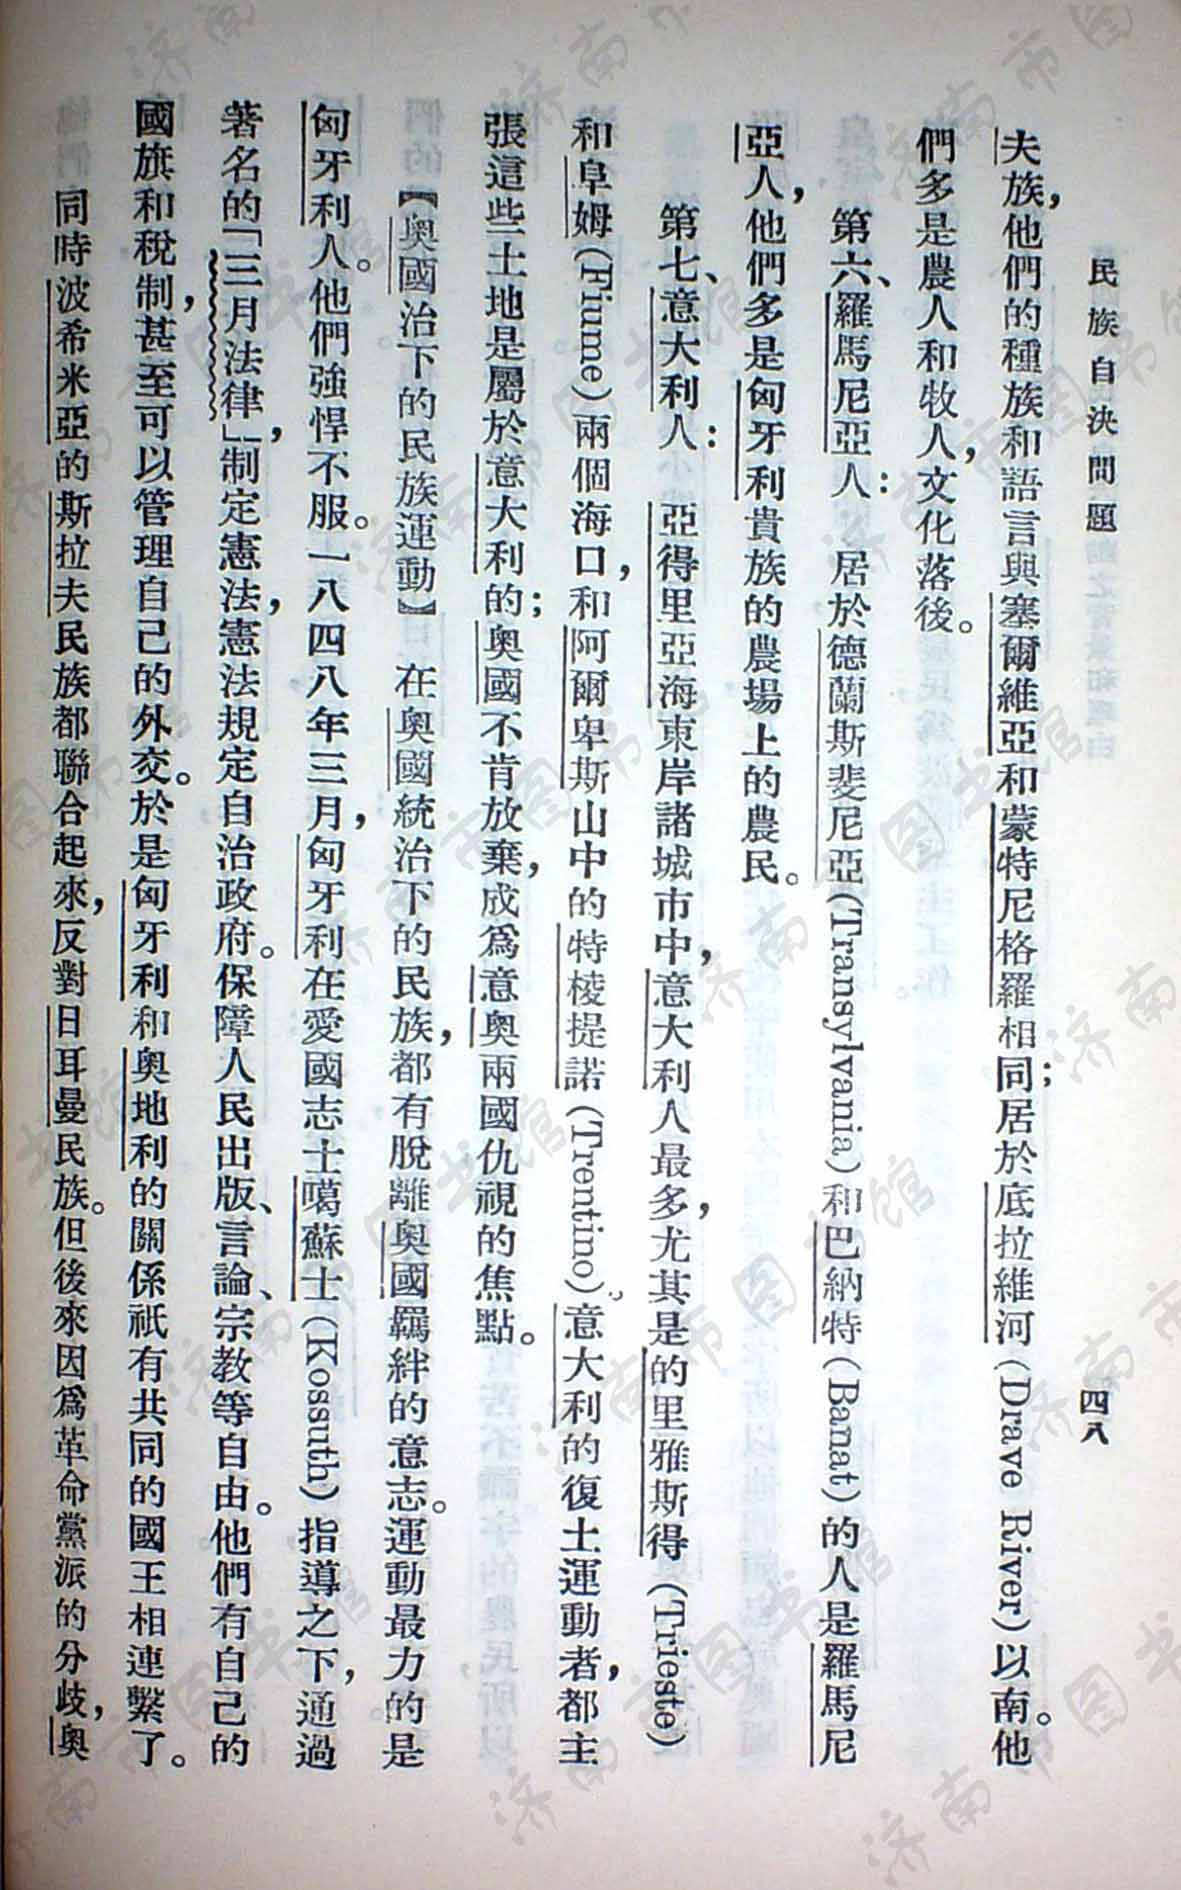 民族自決問題
四八
夫族，他們的種族和語言與塞爾維亞和蒙特尼格羅相同；居於底拉維河（Drave River）以南。他
們多是農人和牧人，文化落後。
第六、羅馬尼亞人：居於德蘭斯斐尼亞（Transylvania）和巴納特（Banat）的人是羅馬尼
亞人，他們多是匈牙利貴族的農場上的農民。
第七、意大利人：亞得里亞海東岸諸城市中，意大利人最多，尤其是的里雅斯得（Trieste）
和阜姆（Fiume）兩個海口，和阿爾卑斯山中的特棱提諾（Trentino）。意大利的復土運動者，都主
張這些土地是屬於意大利的；奧國不肯放棄，成爲意奧兩國仇視的焦點。
【奧國治下的民族運動】　在奧國統治下的民族，都有脫離奧國羈絆的意志。運動最力的是
匈牙利人。他們強悍不服。一八四八年三月，匈牙利在愛國志士噶蘇士（Kossuth）指導之下，通過
著名的「三月法律」，制定憲法，憲法規定自治政府。保障人民出版、言論、宗教等自由。他們有自己的
國旗和稅制，甚至可以管理自己的外交。於是匈牙利和奧地利的關係祇有共同的國王相連繫了。
同時波希米亞的斯拉夫民族都聯合起來，反對日耳曼民族。但後來因爲革命黨派的分歧，奧
济南市图书馆